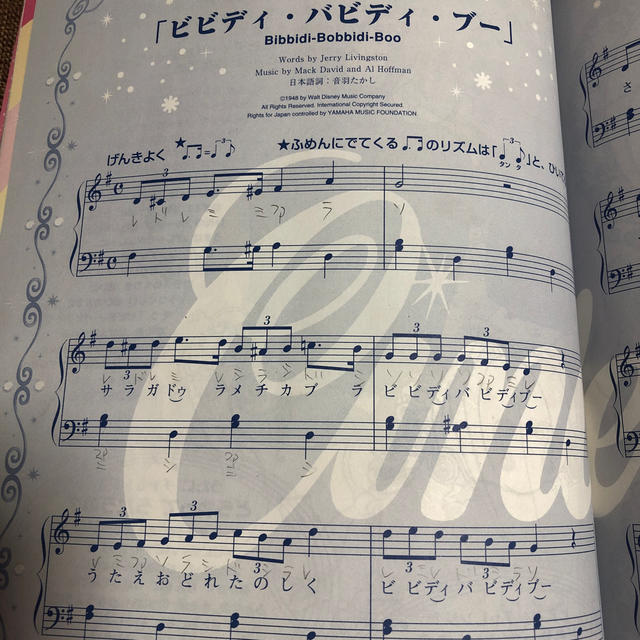 「ビビディ・バビディ・ブー」
Bibbidi-Bobbidi-Boo
Words by Jerry Livingston
Music by Mack David and Al Hoffman
日本語詞：音羽たかし
©1948 by Walt Disney Music Company
All Rights Reserved. International Copyright Secured.
Rights for Japan controlled by YAMAHA MUSIC FOUNDATION
げんきよく ★ = 3
★ふめんにでてくる のリズムは「 3 タン タ 」と、ひい
3
レ ド レ ミ ミ ファ ラ ソ
3 3 3 3
サ ラ ガ ドゥ ラ メ チ カ ブ ラ ビ ビ ディ バ ビ ディ ブー
ミ シ ミ シ
3 3 3 3 3
う た え お ど れ た の し く ビ ビ ディ バ ビ ディ ブー
さ
One